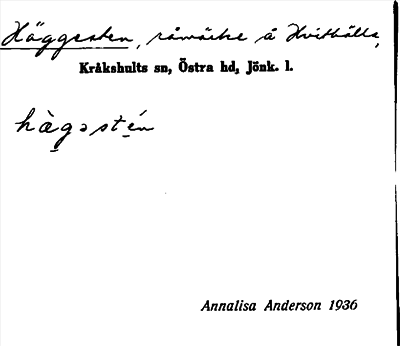 Häggesten, råmärke å Hvithälla,
Kråkshults sn, Östra hd, Jönk. l.
hàg̱əsté̱n
Annalisa Anderson 1936